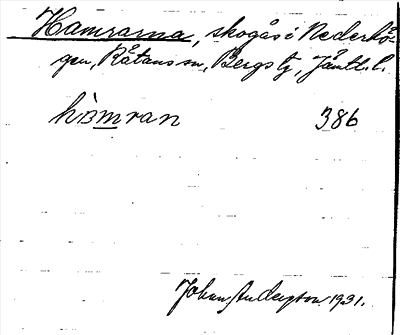 Hamrarna, skogås i Nederhö-
gen, Rätans sn, Bergs tg, Jämtl. l.
hamran 386
Johan Anderzton 1931.